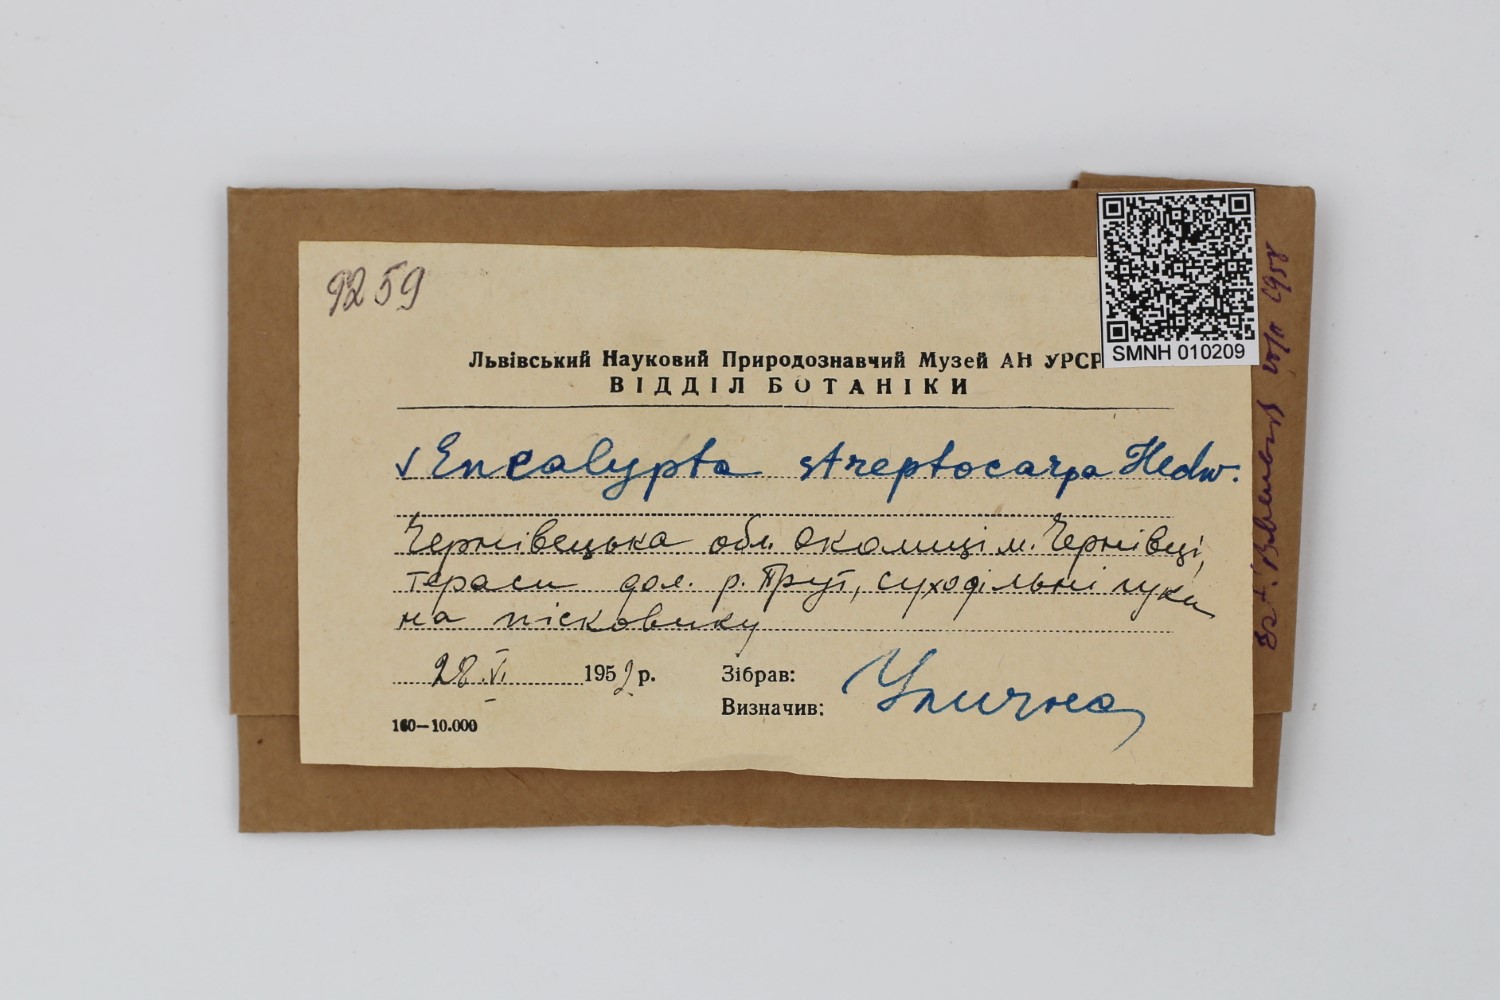 9259
SMNH 010209
Львівський Науковий Природознавчий Музей АН УРСР
ВІДДІЛ БОТАНІКИ
✓ Encalypta streptocarpa Hedw.
Чернівецька обл. околиці м. Чернівці,
тераси дол. р. Прут, суходільні луки
на пісковику
28.VI. 1952 р.
Зібрав:
Визначив: Улична
100—10.000
1958